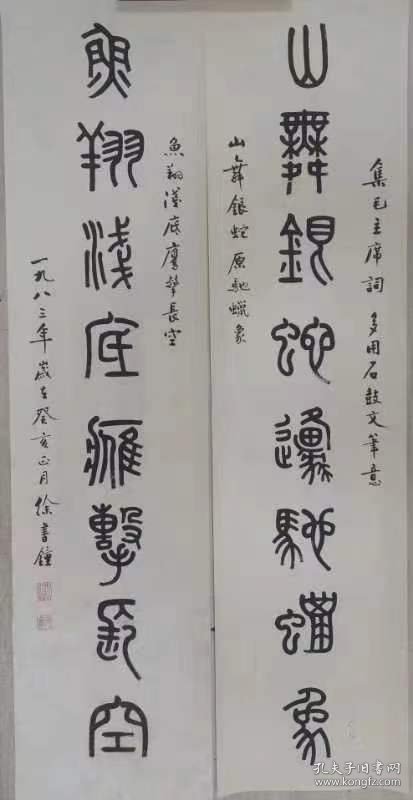 集毛主席詞 多用石鼓文筆意
山舞銀蛇邍馳蠟象
山舞銀蛇原馳蠟象
魚翔淺底鷹擊長空
魚翔淺底鷹擊長空
一九八三年歲在癸亥正月 徐書鐘
孔夫子旧书网
kongfz.com